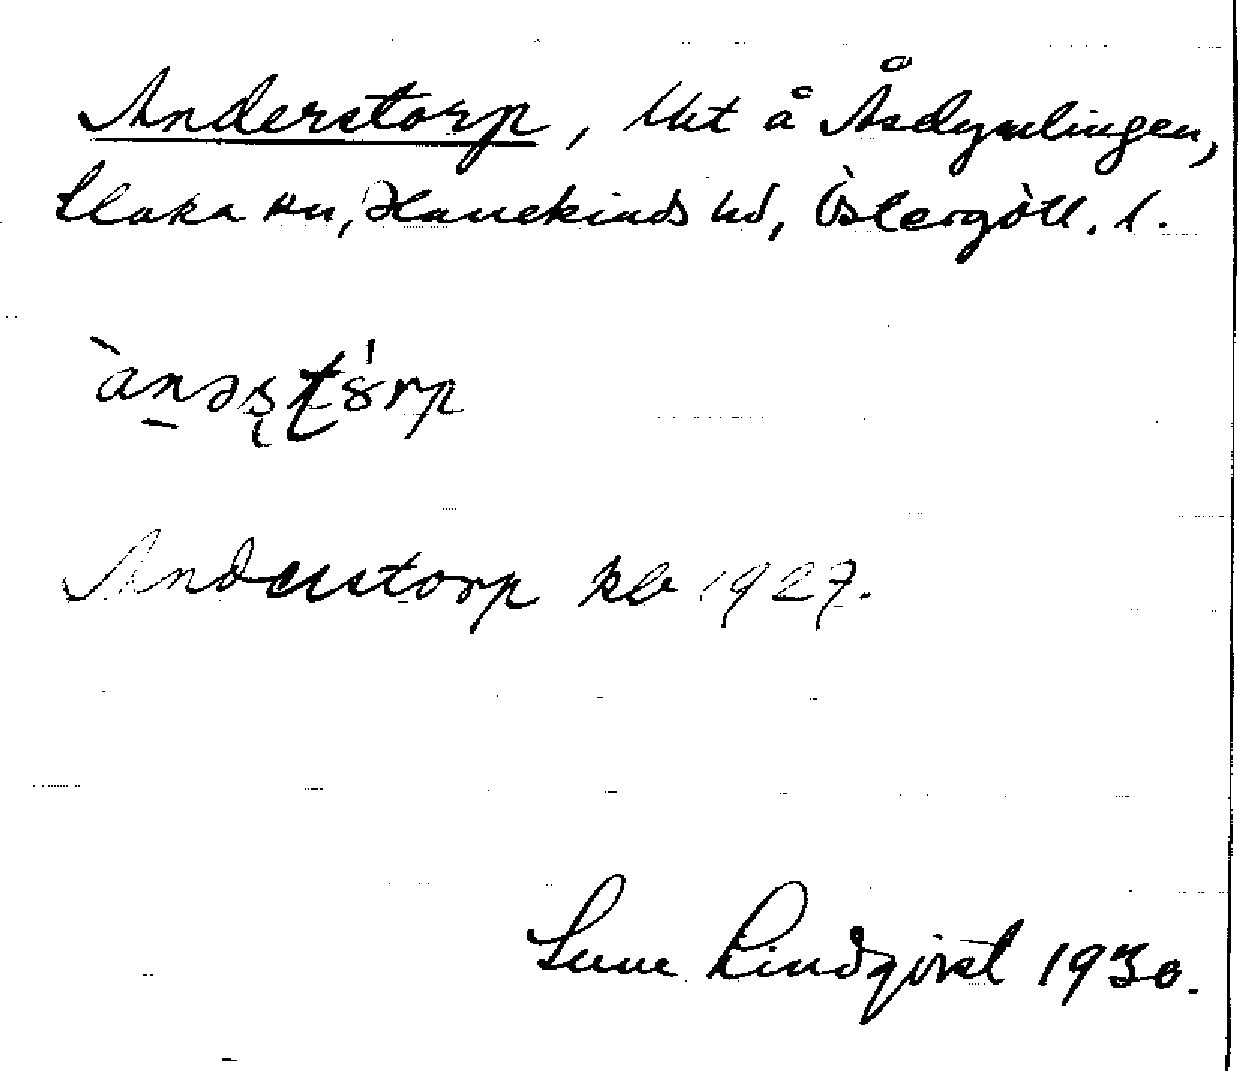 Anderstorp, lht å Åsdymlingen,
Slaka sn, Hanekinds hd, Östergötl. l.
ànəʂʈórp
Anderstorp kb 1927.
Sune Lindqvist 1930.